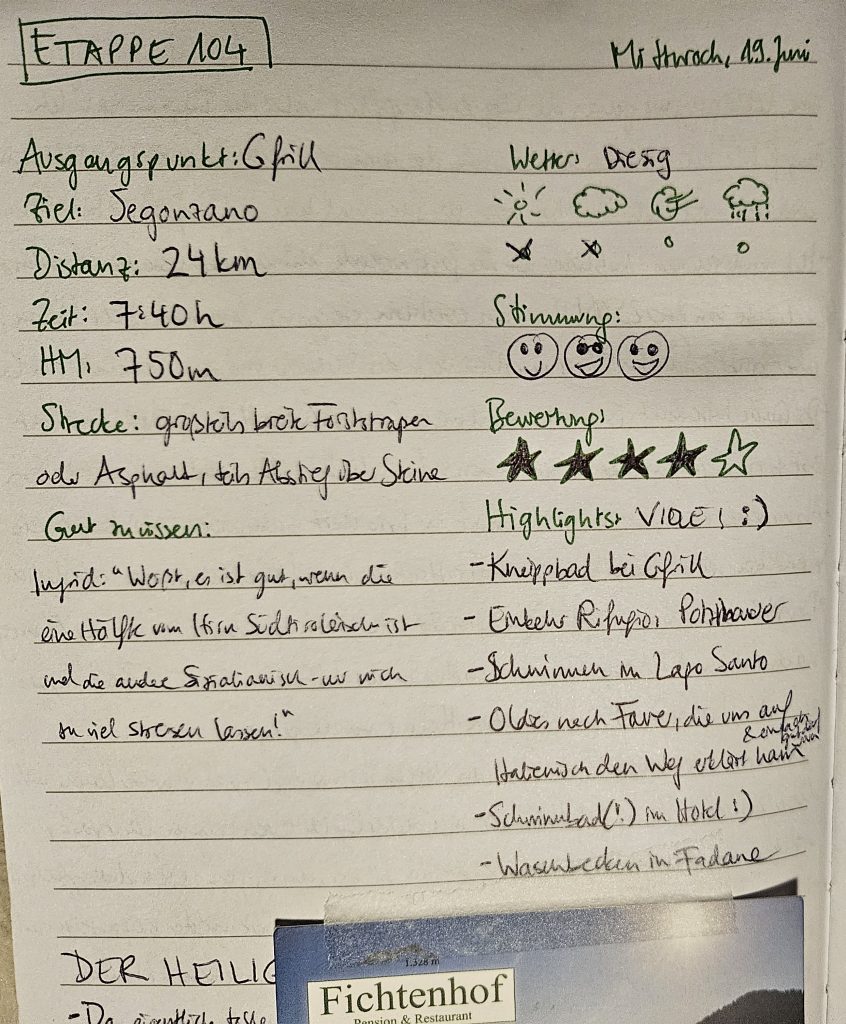 ETAPPE 104
Mittwoch, 19. Juni
Ausgangspunkt: Gfrill
Ziel: Segonzano
Distanz: 24 km
Zeit: 7:40 h
HM: 750 m
Strecke: großteils breite Forststraßen
oder Asphalt, teils Abstieg über Steine
Gut zu wissen:
Ingrid: "Woßt, es ist gut, wenn die
eine Hälfte vom Hirn Südtirolerisch ist
und die andere Sizialianisch - nur nich
zu viel stressen lassen!"
Wetter: Diesig
Stimmung:
Bewertung:
Highlights: VIELE! :)
- Kneippbad bei Gfrill
- Einkehr Rifugio Potzmauer
- Schwimmen im Lago Santo
- Oldies nach Faver, die uns auf
Italienisch den Weg erklärt ham
& einfach
- Schwimmbad(!) im Hotel :)
- Waschbecken in Fadane
DER HEILIG
- Da eigentlich
1.328 m
Fichtenhof
Pension & Restaurant